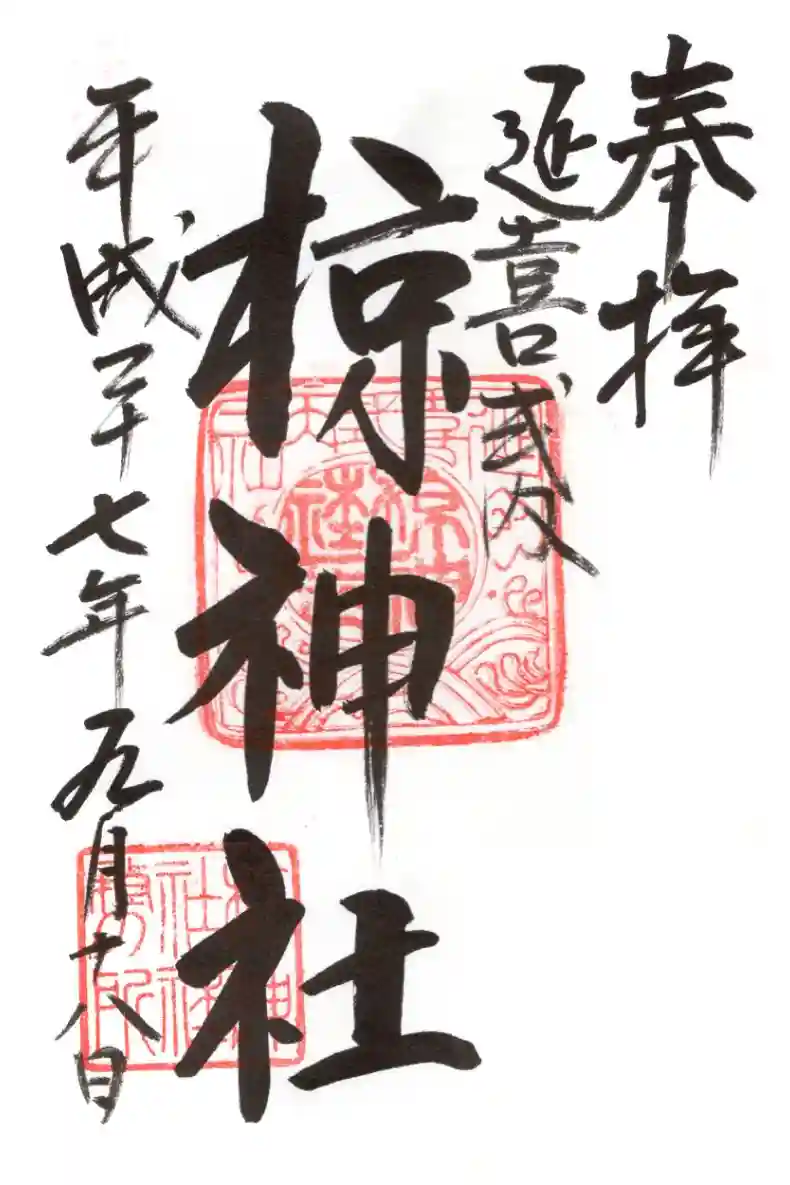 奉拝
延喜式内
椋神社
平成二十七年九月十八日